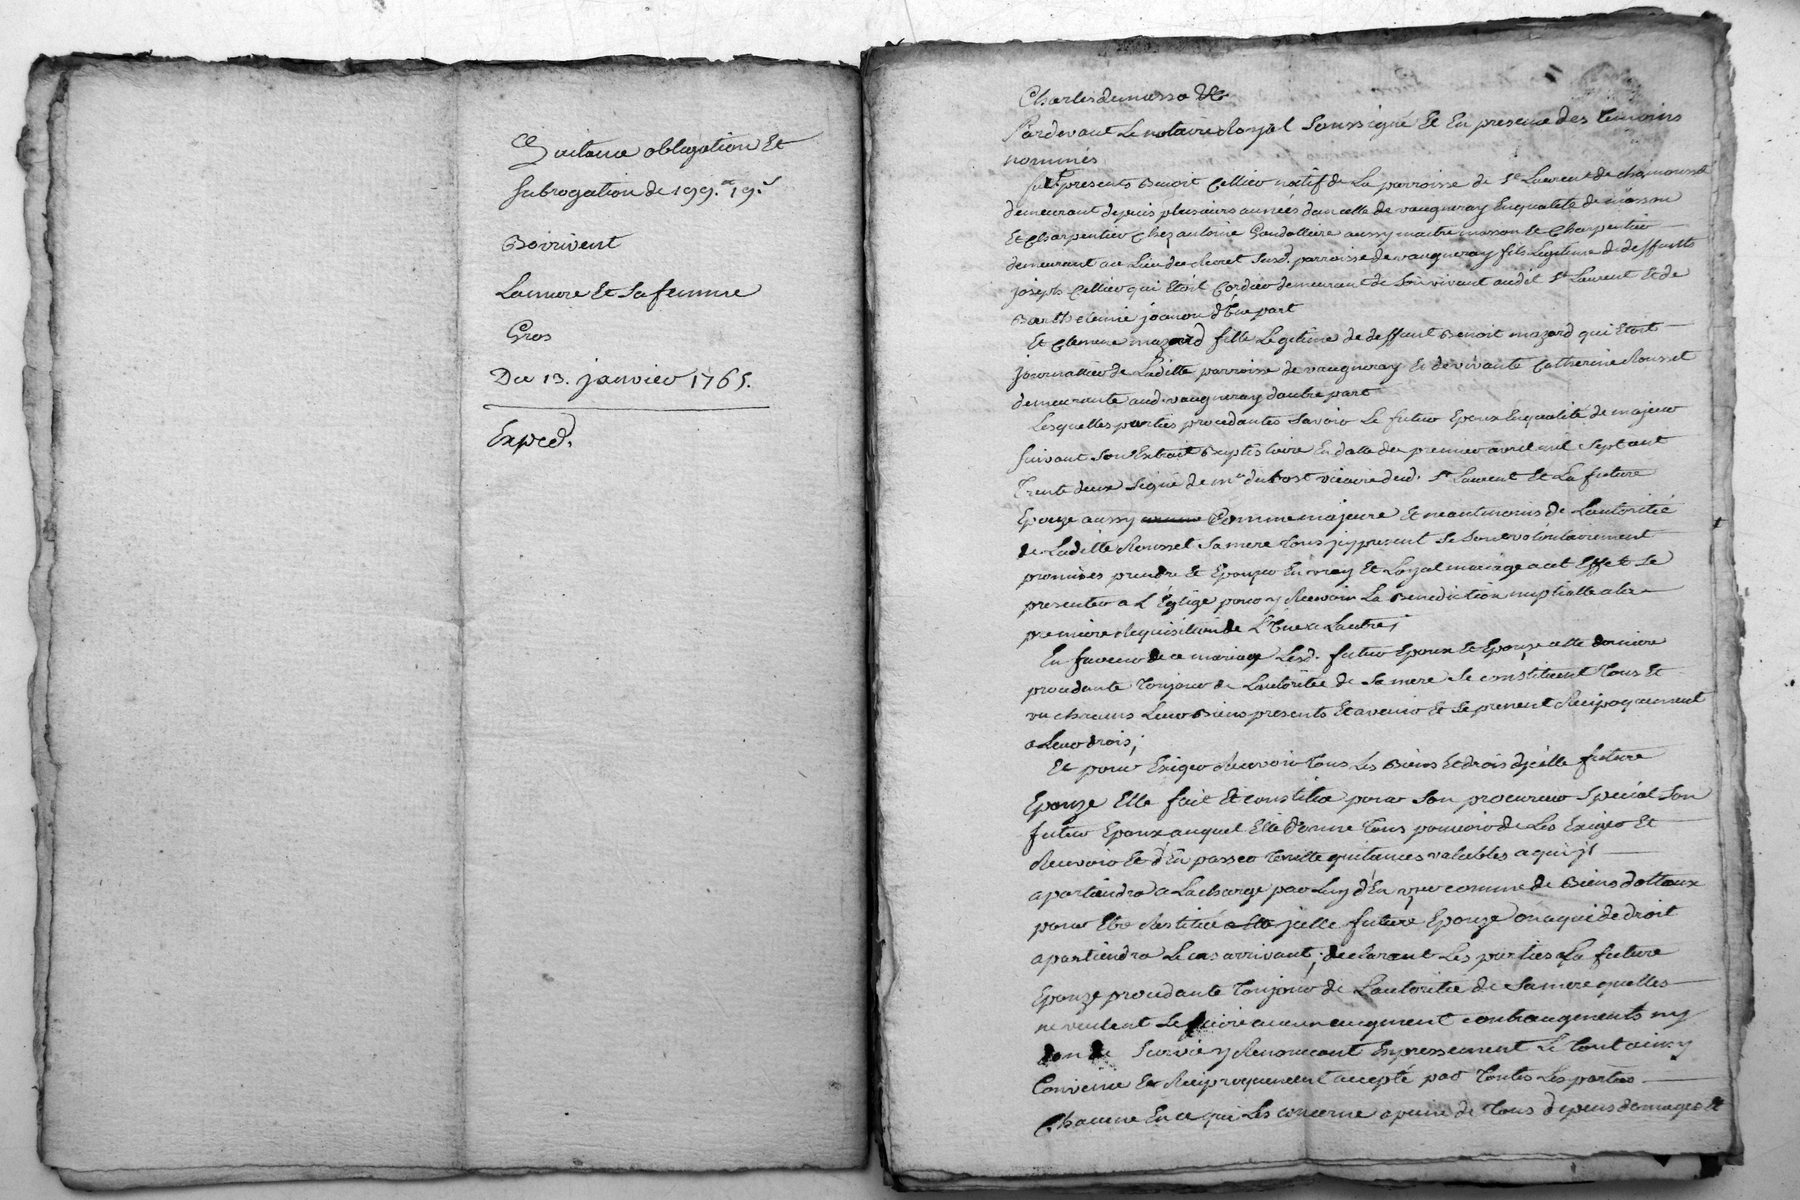 Quitance obligation Et
subrogation de 199.# 19.s
Boirivent
Lamure Et Sa femme
Gros
Du 13. janvier 1765.
Exped.
Pardevant Le notaire Royal Soussigné Et En presence des Temoins
nommés
furt presents Benoit Cellier natif de La parroisse de St Laurent de chamousset
demeurant depuis plusieurs années dans celle de vaugneray En qualité de masson
Et Charpentier Chez antoine aussy maitre masson Et Charpentier
demeurant au Lieu du Recret Susd. parroisse de vaugneray fils Legitime de deffunt
joseph Cellier qui Etoit Cordier demeurant de Son vivant audit St Laurent Et de
Barthelemie joanon d'Une part
Et Clemence mazard fille Legitime de deffunt Benoit mazard qui Etoit
journallier de Laditte parroisse de vaugneray Et de vivante Catherine Rousset
demeurante aud. vaugneray dautre part
Lesquelles parties procedantes Savoir Le futur Epoux En qualité de majeur
suivant Son Extrait Baptistaire En datte du premier avril mil Sept cent
Trente deux Signé de mre dubost vicaire dud. St Laurent Et La future
Epouze aussy Comme majeure Et neantmoins de Lautorité
de Laditte Rousset Sa mere Tous jcy present Se Sont volontairement
promises prendre Et Epouzer En vray Et Loyal mariage a cet Effet Se
presenter a L'Église pour y Recevoir La Benediction nuptialle a la
premiere Requisition de L'Une a Lautre;
En faveur de ce mariage Lesd. futur Epoux Et Epouze cette derniere
procedante Toujour de Lautoritée de Sa mere Se constituent Tous Et
un chacuns Leur Biens presents Et avenir Et Se prenent Reciproquement
a Leur drois;
Et pour Exiger Recevoir Tous Les Biens Et drois dicelle future
Epouze Elle fait Et constitue pour Son procureur Special Son
futur Epoux auquel Elle donne Tous pouvoir de Les Exiger Et
Recevoir Et d'En passer Tentte quitances valables a qui jl
apartiendra a La charge par Luy d'En user comme de Biens dottaux
pour Etre Restitué a jcelle future Epouze ou a qui de droit
apartiendra Le cas arrivant; declarant Les parties La future
Epouze procedante Toujour de Lautoritée de Sa mere quelles
ne veulent Se faire aucun augment contraugments ny
don de Survie y Renoncant Expressement Le Tout ainsy
Convenu Et Reciproquement accepté par Toutes Les parties
Chacune En ce qui Les concerne a peine de Tous depens domages Et